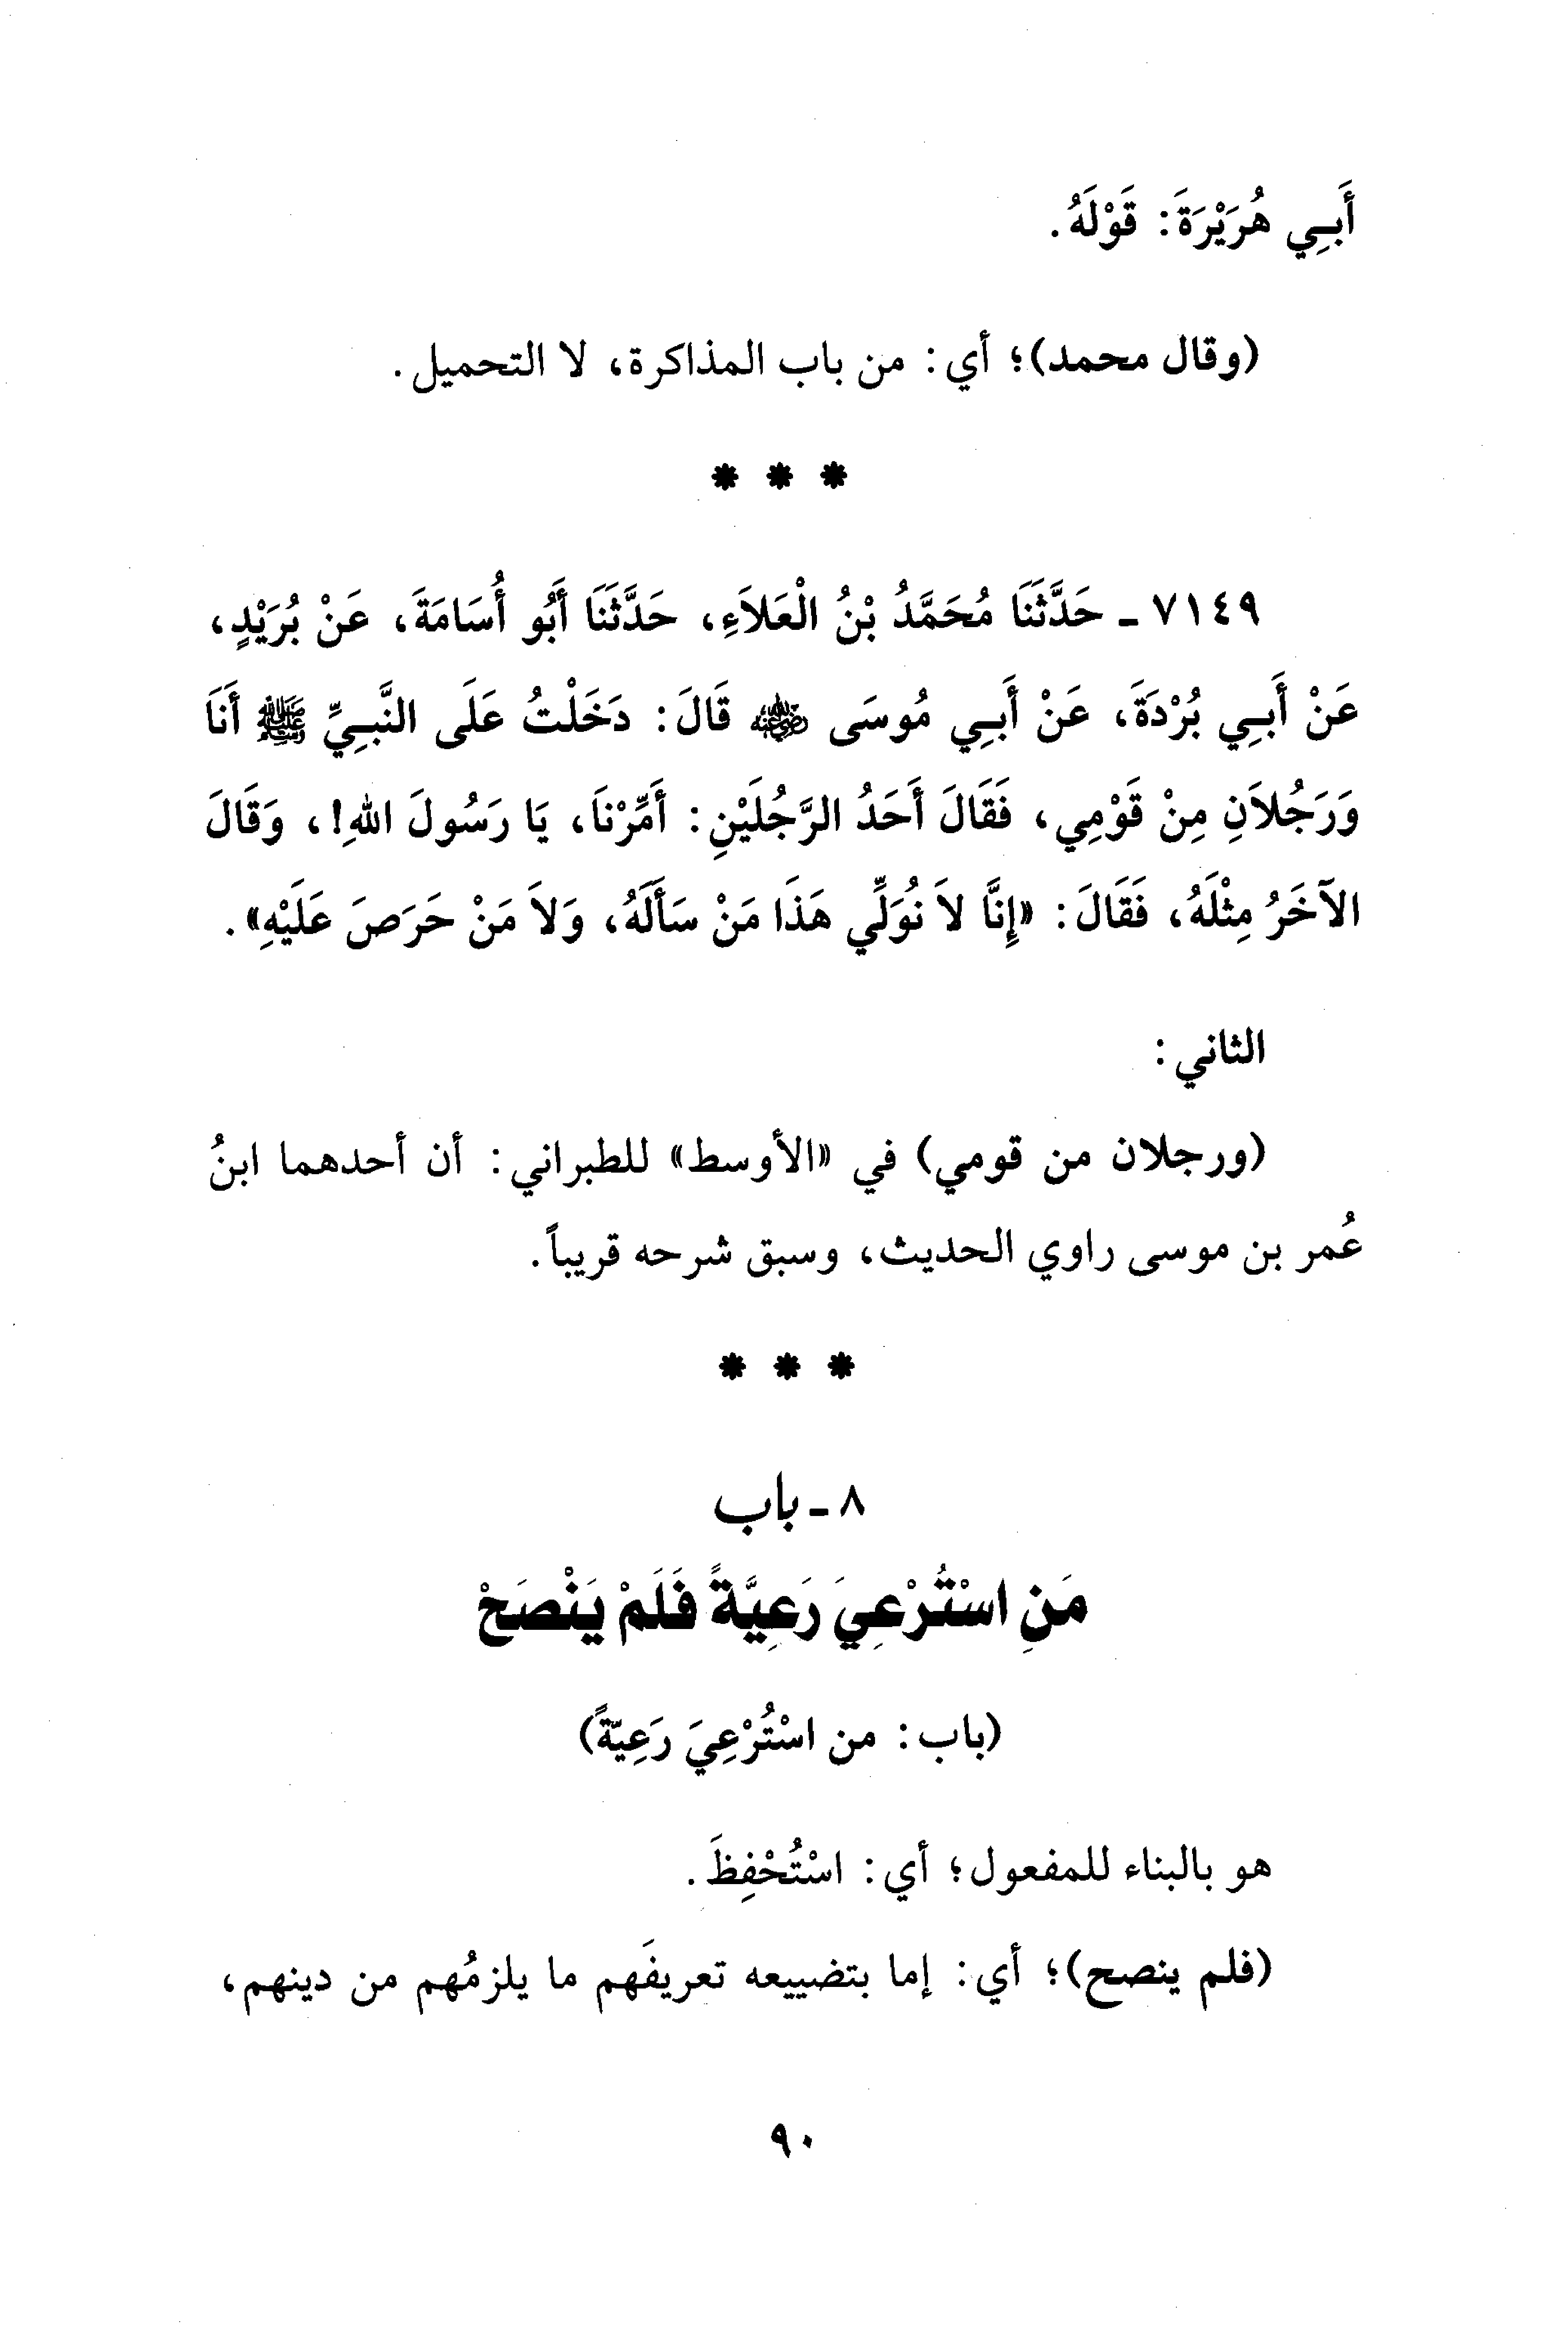 أَبِي هُرَيْرَةَ: قَوْلَهُ.
(وقال محمد)؛ أي: من باب المذاكرة، لا التحميل.
* * *
٧١٤٩ - حَدَّثَنَا مُحَمَّدُ بْنُ الْعَلاَءِ، حَدَّثَنَا أَبُو أُسَامَةَ، عَنْ بُرَيْدٍ،
عَنْ أَبِي بُرْدَةَ، عَنْ أَبِي مُوسَى رضي الله عنه قَالَ: دَخَلْتُ عَلَى النَّبِيِّ ﷺ أَنَا
وَرَجُلاَنِ مِنْ قَوْمِي، فَقَالَ أَحَدُ الرَّجُلَيْنِ: أَمِّرْنَا، يَا رَسُولَ اللهِ!، وَقَالَ
الآخَرُ مِثْلَهُ، فَقَالَ: «إِنَّا لاَ نُوَلِّي هَذَا مَنْ سَأَلَهُ، وَلاَ مَنْ حَرَصَ عَلَيْهِ».
الثاني:
(ورجلان من قومي) في «الأوسط» للطبراني: أن أحدهما ابنُ
عُمر بن موسى راوي الحديث، وسبق شرحه قريباً.
* * *
٨ - باب
مَنِ اسْتُرْعِيَ رَعِيَّةً فَلَمْ يَنْصَحْ
(باب: من اسْتُرْعِيَ رَعِيّةً)
هو بالبناء للمفعول؛ أي: اسْتُحْفِظَ.
(فلم ينصح)؛ أي: إما بتضييعه تعريفَهم ما يلزمُهم من دينهم،
٩٠